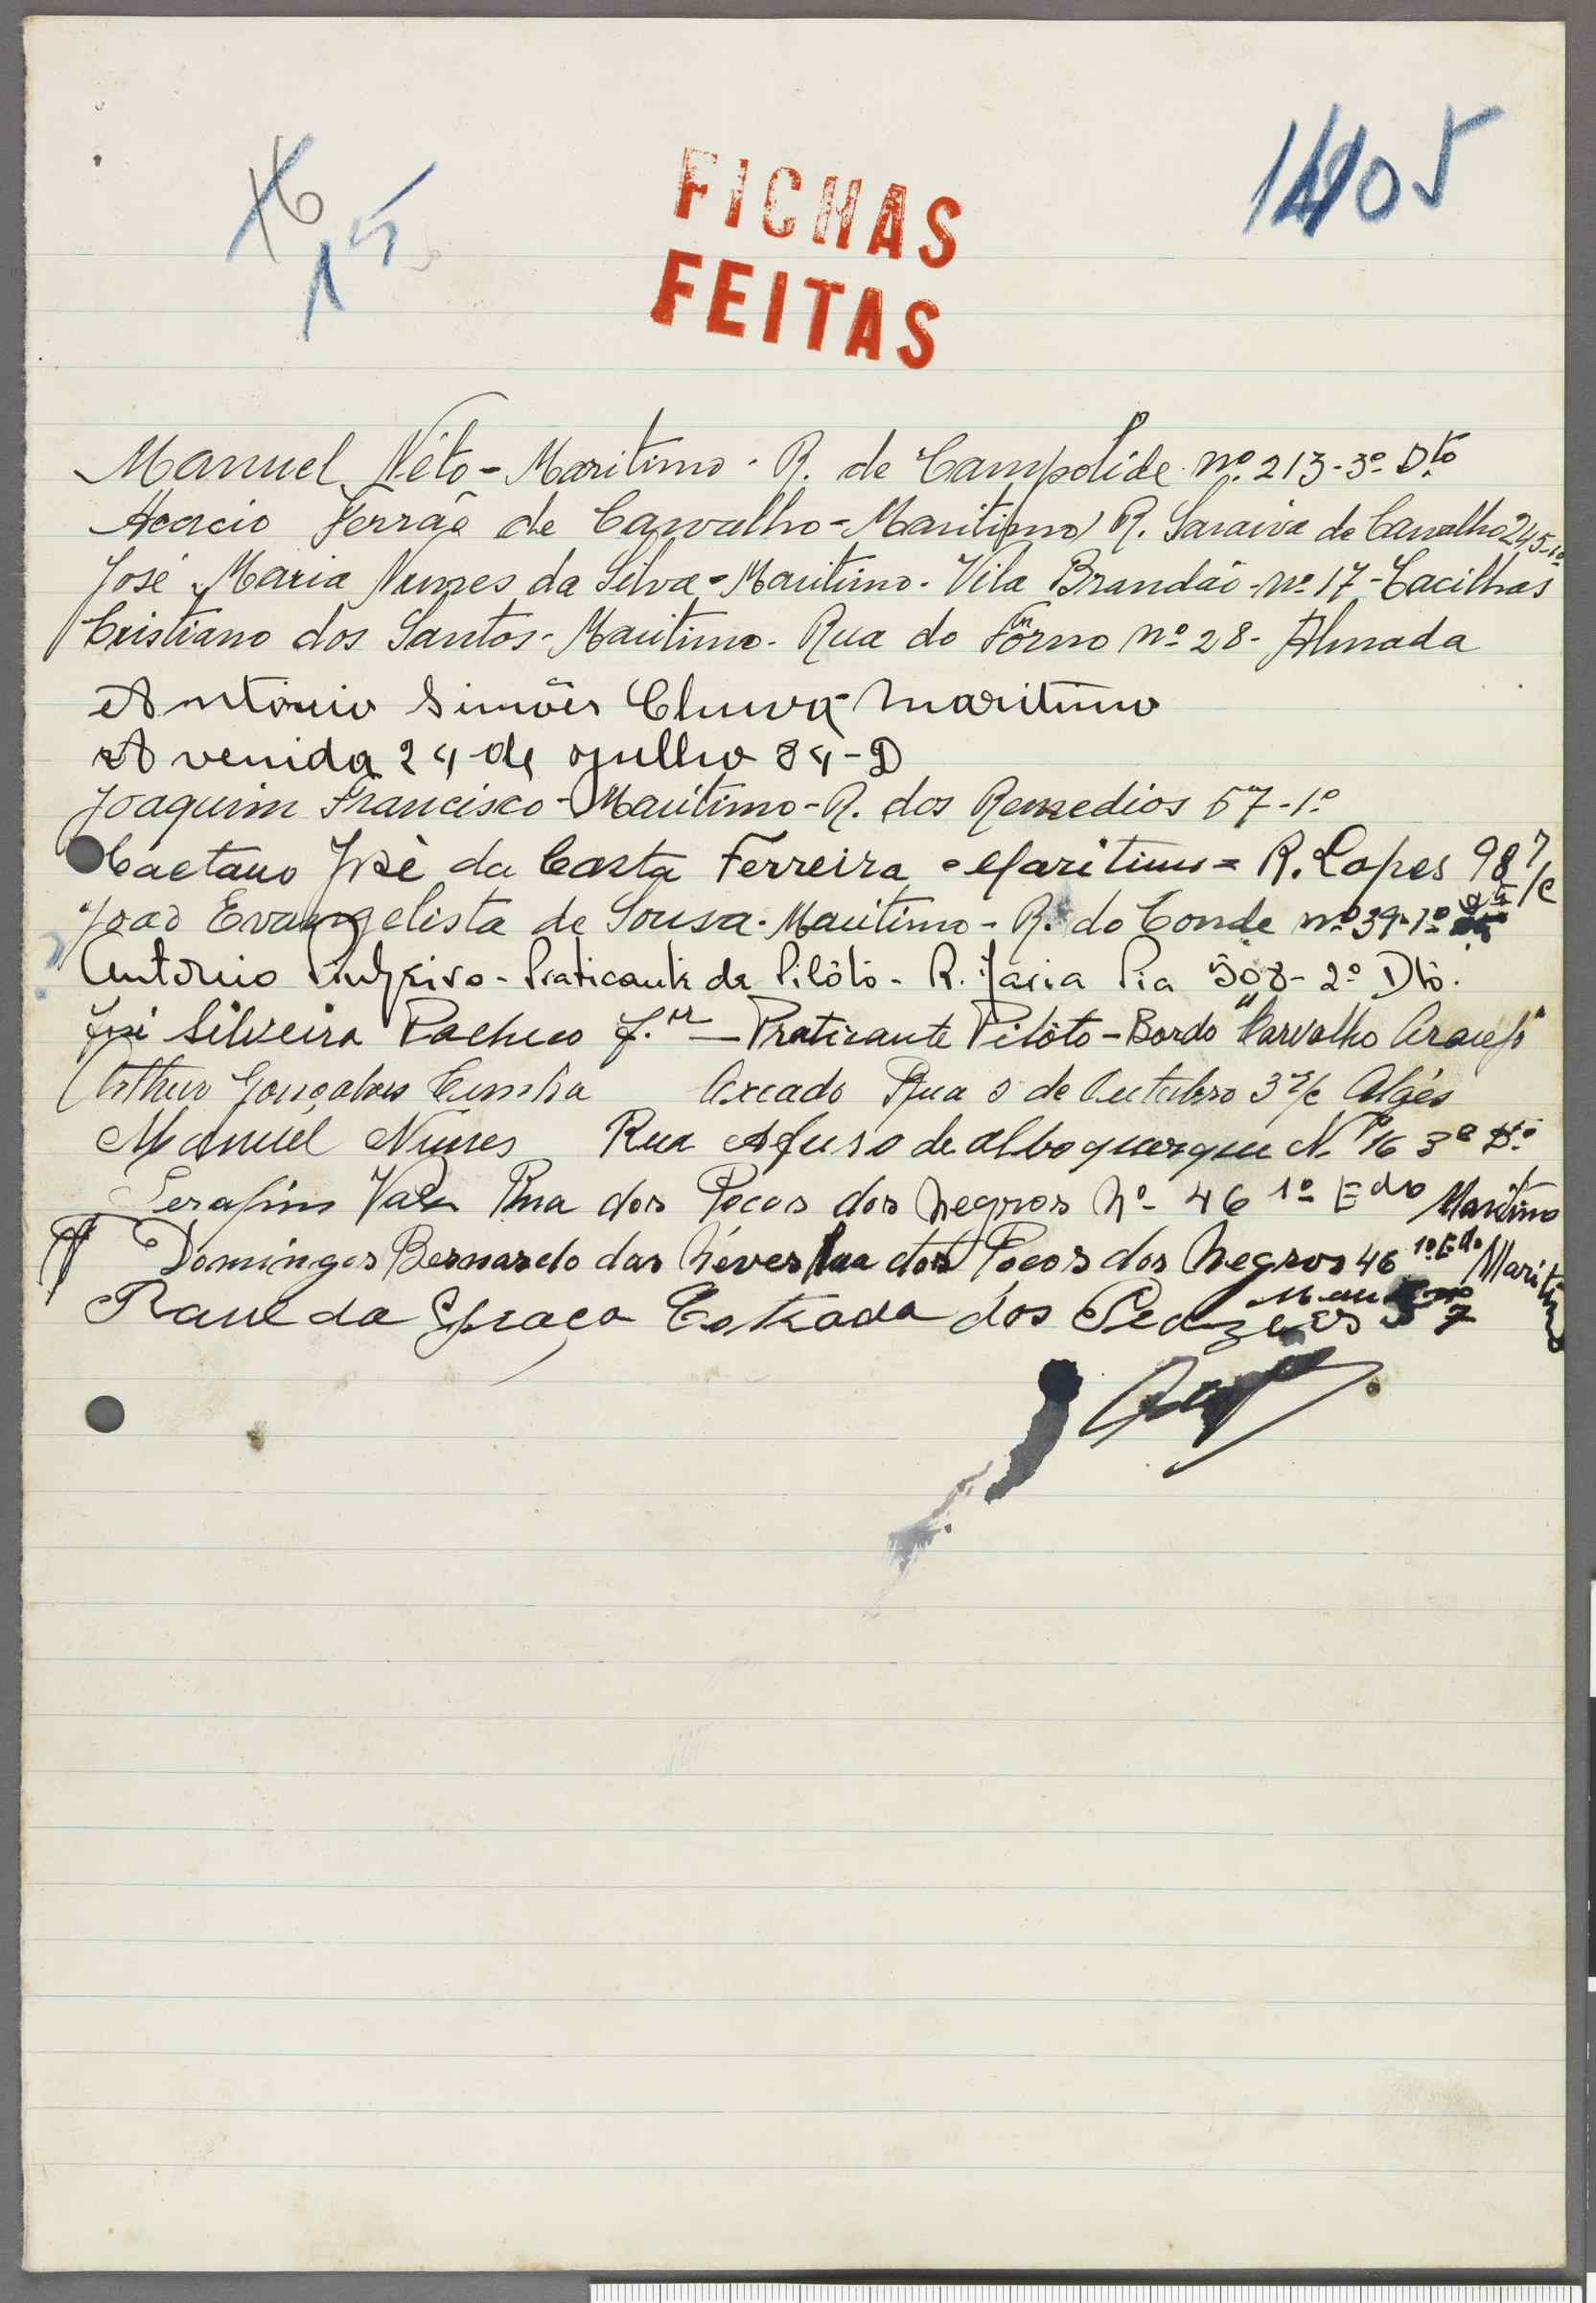 16
15
FICHAS
FEITAS
Manuel Nêto - Maritimo - R. de Campolide nº 213-3º Dto
Acacio Ferrão de Carvalho - Maritimo R. Saraiva de Carvalho 245-1º
José Maria Nunes da Silva - Maritimo - Vila Brandão - nº 17 - Cacilhas
Cristiano dos Santos - Maritimo - Rua do Forno nº 28 - Almada
António Simões Chuva - maritimo
Avenida 24 de Julho 84-D
Joaquim Francisco - Maritimo - R. dos Remedios 57-1º
Caetano José da Costa Ferreira - Maritimo = R. Lopes 98 r/c
João Evangelista de Sousa - Maritimo - R. do Conde nº 39-1º
Antonio Pinheiro - Praticante de Pilôto - R. Maria Pia 508-2º Dto.
José Silveira Pacheco J.or — Praticante Pilôto - Bordo "Carvalho Araujo"
Arthur Gonçalves Cunha Rua 5 de Outubro 3 r/c Algés
Manuel Nunes Rua Afuso de alboquerque Nº 16 3º Dº
Serafim Rua dos Pocos dos Negros Nº 46 1º Edo Maritimo
Domingos Bernardo das Neves Rua dos Pocos dos Negros 46 1º Edo Maritimo
Raul da Graça Estrada dos 7